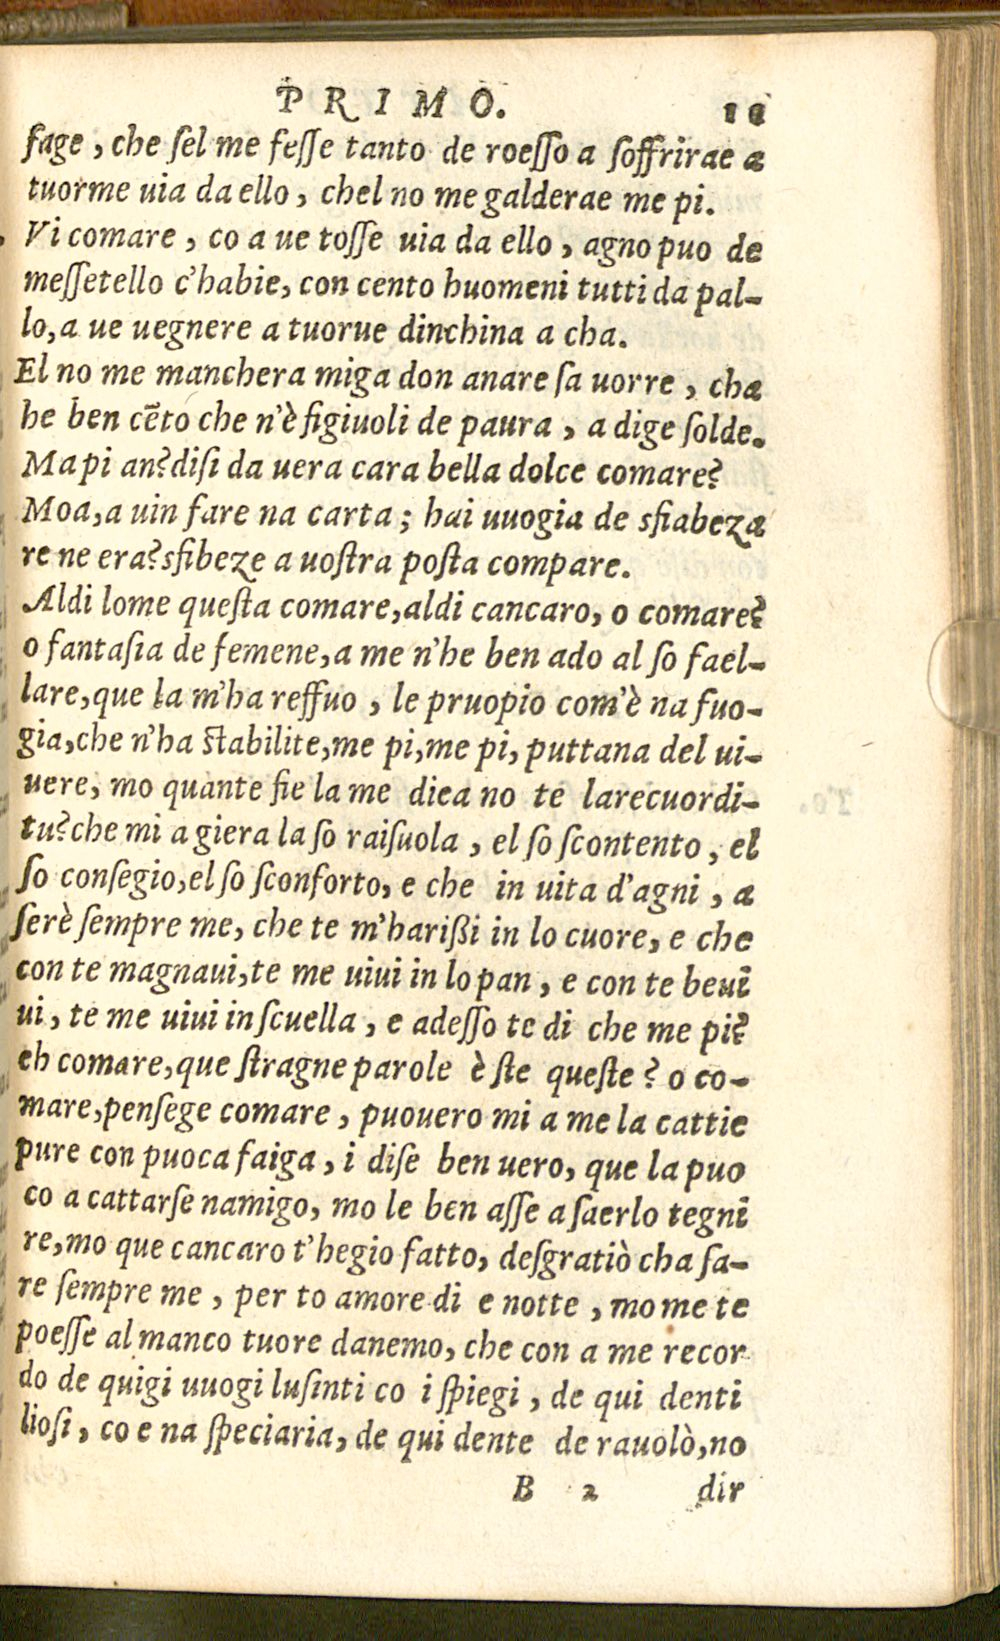 PRIMO. 11
fage, che ſel me feſſe tanto de roeſſo a ſoffrirae a
tuorme uia da ello, chel no me galderae me pi.
Vi comare, co a ue toſſe uia da ello, agno puo de
meſſetello c'habie, con cento huomeni tutti da pal-
lo, a ue uegnere a tuorue dinchina a cha.
El no me manchera miga don anare ſa uorre, cha
he ben cēto che n'è figiuoli de paura, a dige ſolde.
Ma pi an? diſi da uera cara bella dolce comare?
Moa, a uin fare na carta; hai uuogia de sfiabeza
re ne era? sfibeze a uoſtra poſta compare.
Aldi lome queſta comare, aldi cancaro, o comare?
o fantaſia de femene, a me n'he ben ado al ſo fael-
lare, que la m'ha reffuo, le pruopio com'è na fuo-
gia, che n'ha ſtabilite, me pi, me pi, puttana del ui-
uere, mo quante fie la me diea no te larecuordi-
tu? che mi a giera la ſo raiſuola, el ſo ſcontento, el
ſo conſegio, el ſo ſconforto, e che in uita d'agni, a
ſerè ſempre me, che te m'harißi in lo cuore, e che
con te magnaui, te me uiui in lo pan, e con te beuī
ui, te me uiui in ſcuella, e adeſſo te di che me pi?
eh comare, que ſtragne parole è ſte queſte? o co-
mare, penſege comare, puouero mi a me la cattie
pure con puoca faiga, i diſe ben uero, que la puo
co a cattarſe namigo, mo le ben aſſe a ſaerlo tegnī
re, mo que cancaro t'hegio fatto, deſgratiò cha ſa-
re ſempre me, per to amore di e notte, mo me te
poeſſe al manco tuore danemo, che con a me recor
do de quigi uuogi luſinti co i ſpiegi, de qui denti
lioſi, co e na ſpeciaria, de qui dente de rauolò, no
B 2 dir